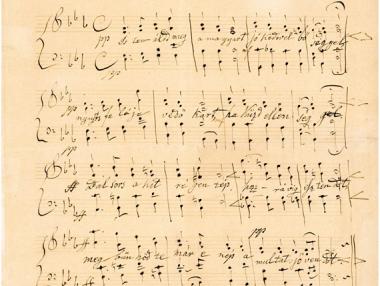 pp Isten áldd meg a magyart jó kedvel bőséggel
pp
nyujts feléje védő kart, ha küzd ellennséggel
pp
ff Balsors a kit régen tép, hoz rá víg esztendőt
ff
pp
meg bűnhődte már e nép a multat jövendőt
ff